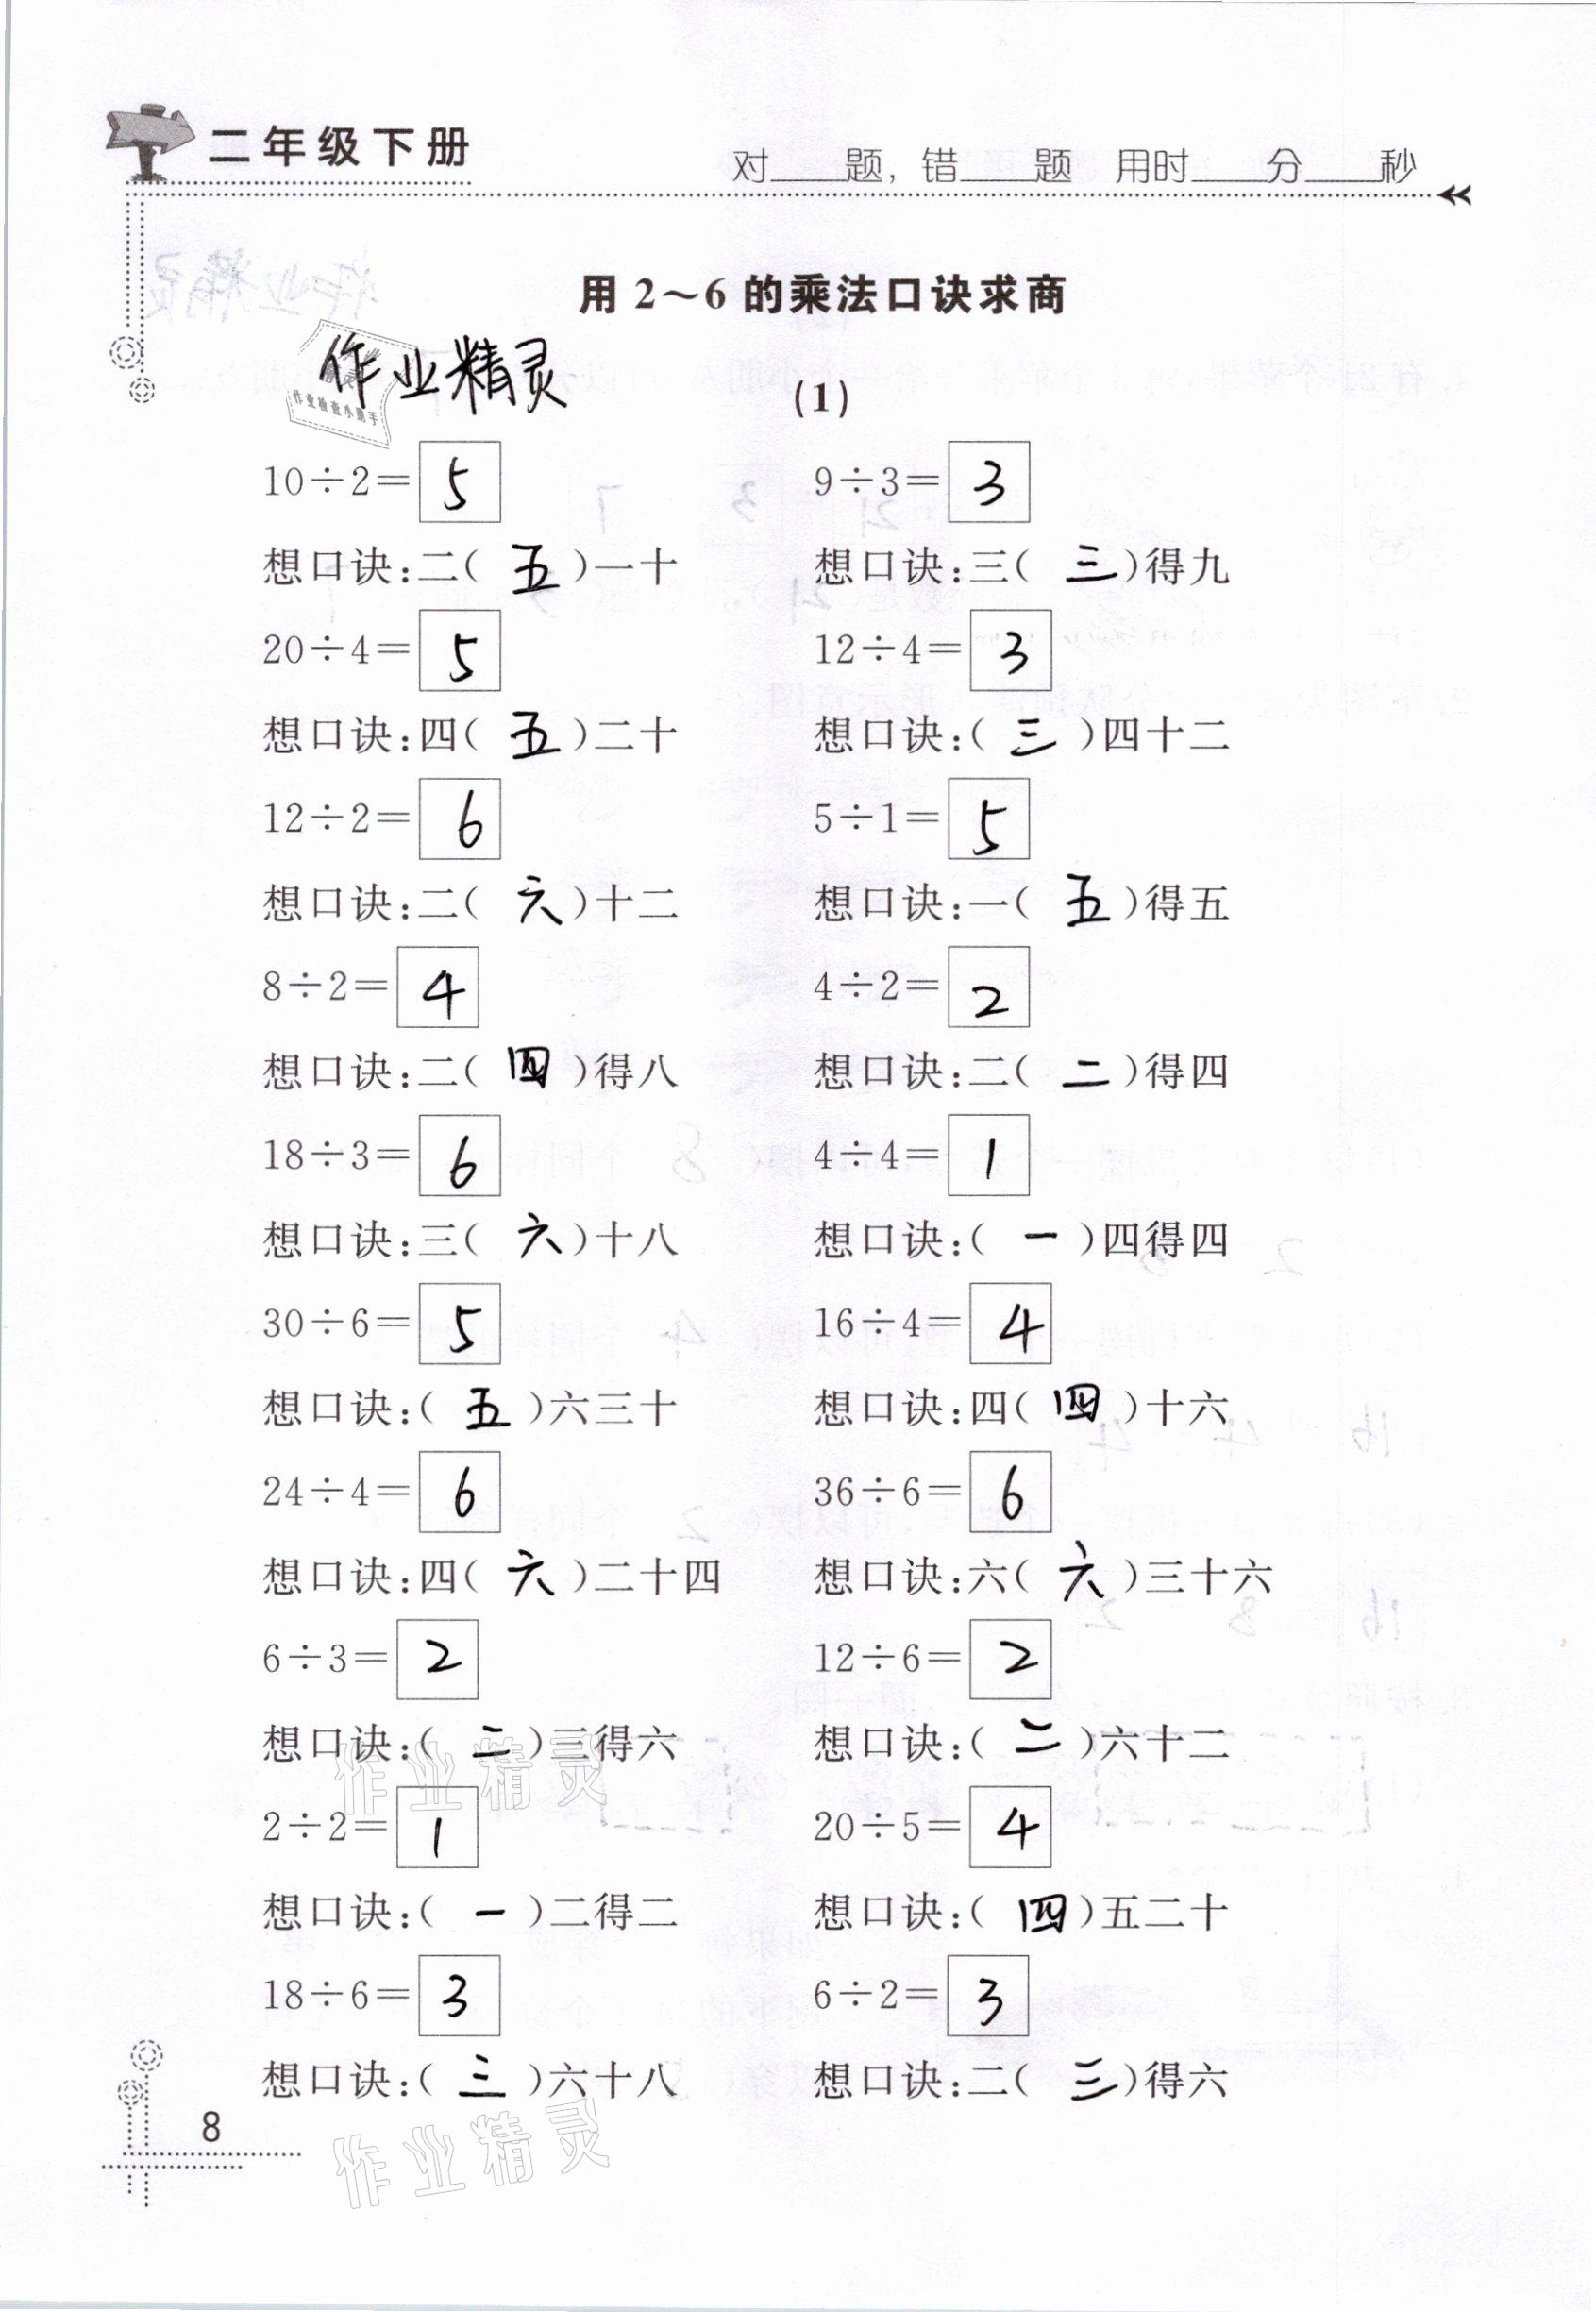 二年级下册
对____题，错____题 用时____分____秒
用2～6的乘法口诀求商
作业精灵
作业检查小助手
（1）
10÷2=5 9÷3=3
想口诀：二（五）一十 想口诀：三（三）得九
20÷4=5 12÷4=3
想口诀：四（五）二十 想口诀：（三）四十二
12÷2=6 5÷1=5
想口诀：二（六）十二 想口诀：一（五）得五
8÷2=4 4÷2=2
想口诀：二（四）得八 想口诀：二（二）得四
18÷3=6 4÷4=1
想口诀：三（六）十八 想口诀：（一）四得四
30÷6=5 16÷4=4
想口诀：（五）六三十 想口诀：四（四）十六
24÷4=6 36÷6=6
想口诀：四（六）二十四 想口诀：六（六）三十六
6÷3=2 12÷6=2
想口诀：（二）三得六 想口诀：（二）六十二
作业精灵
2÷2=1 20÷5=4
想口诀：（一）二得二 想口诀：（四）五二十
18÷6=3 6÷2=3
想口诀：（三）六十八 想口诀：二（三）得六
8
作业精灵